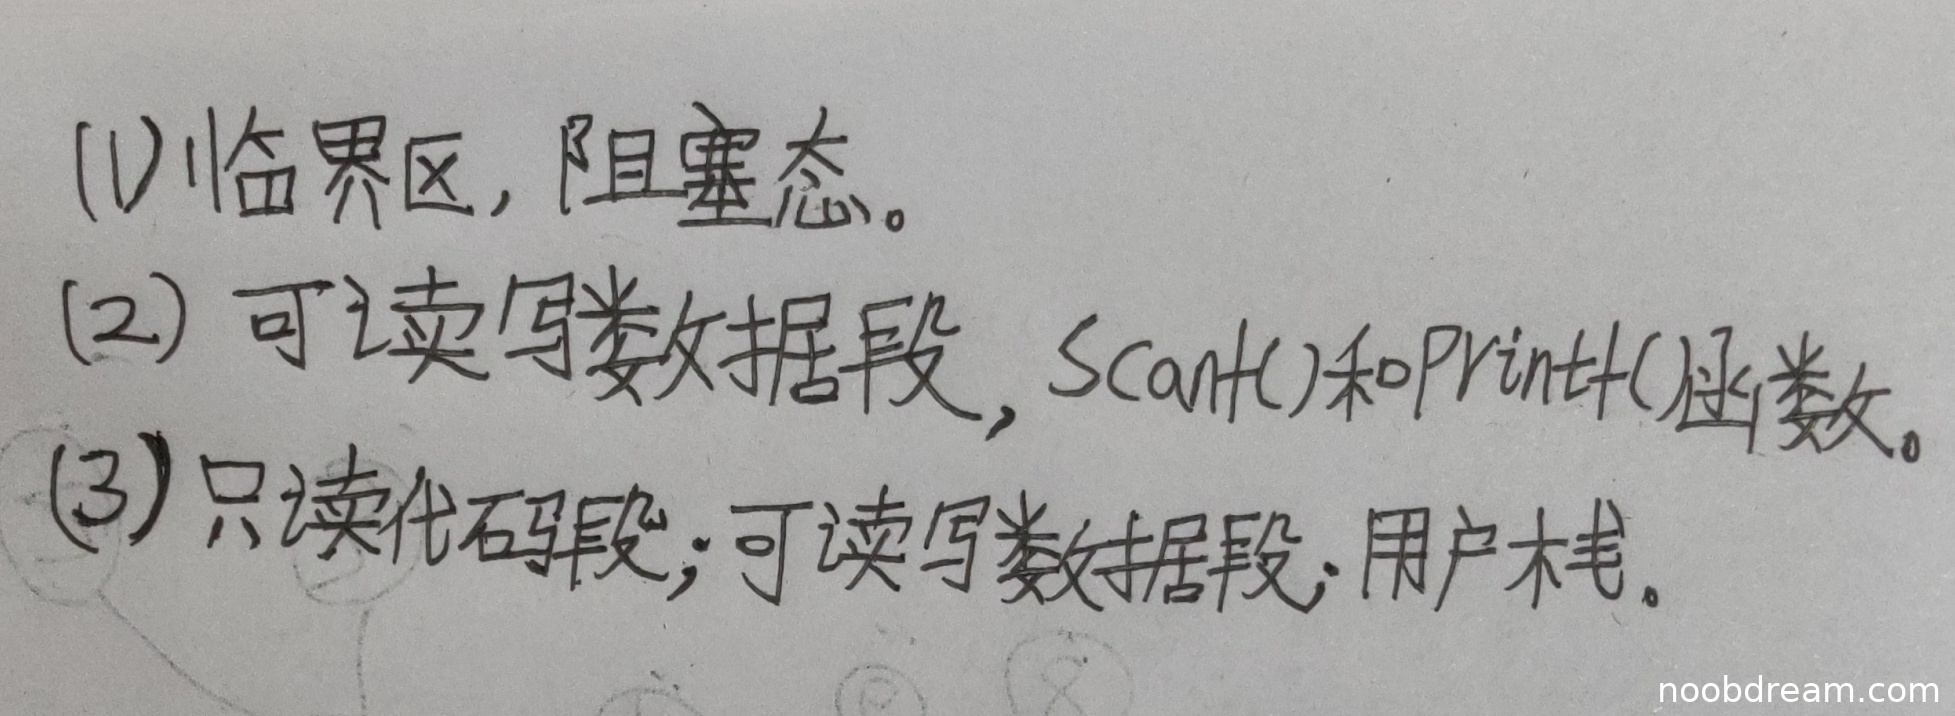 (1) 临界区, 阻塞态。
(2) 可读写数据段, Scanf()和printf()函数。
(3) 只读代码段; 可读写数据段; 用户栈.
noobdream.com